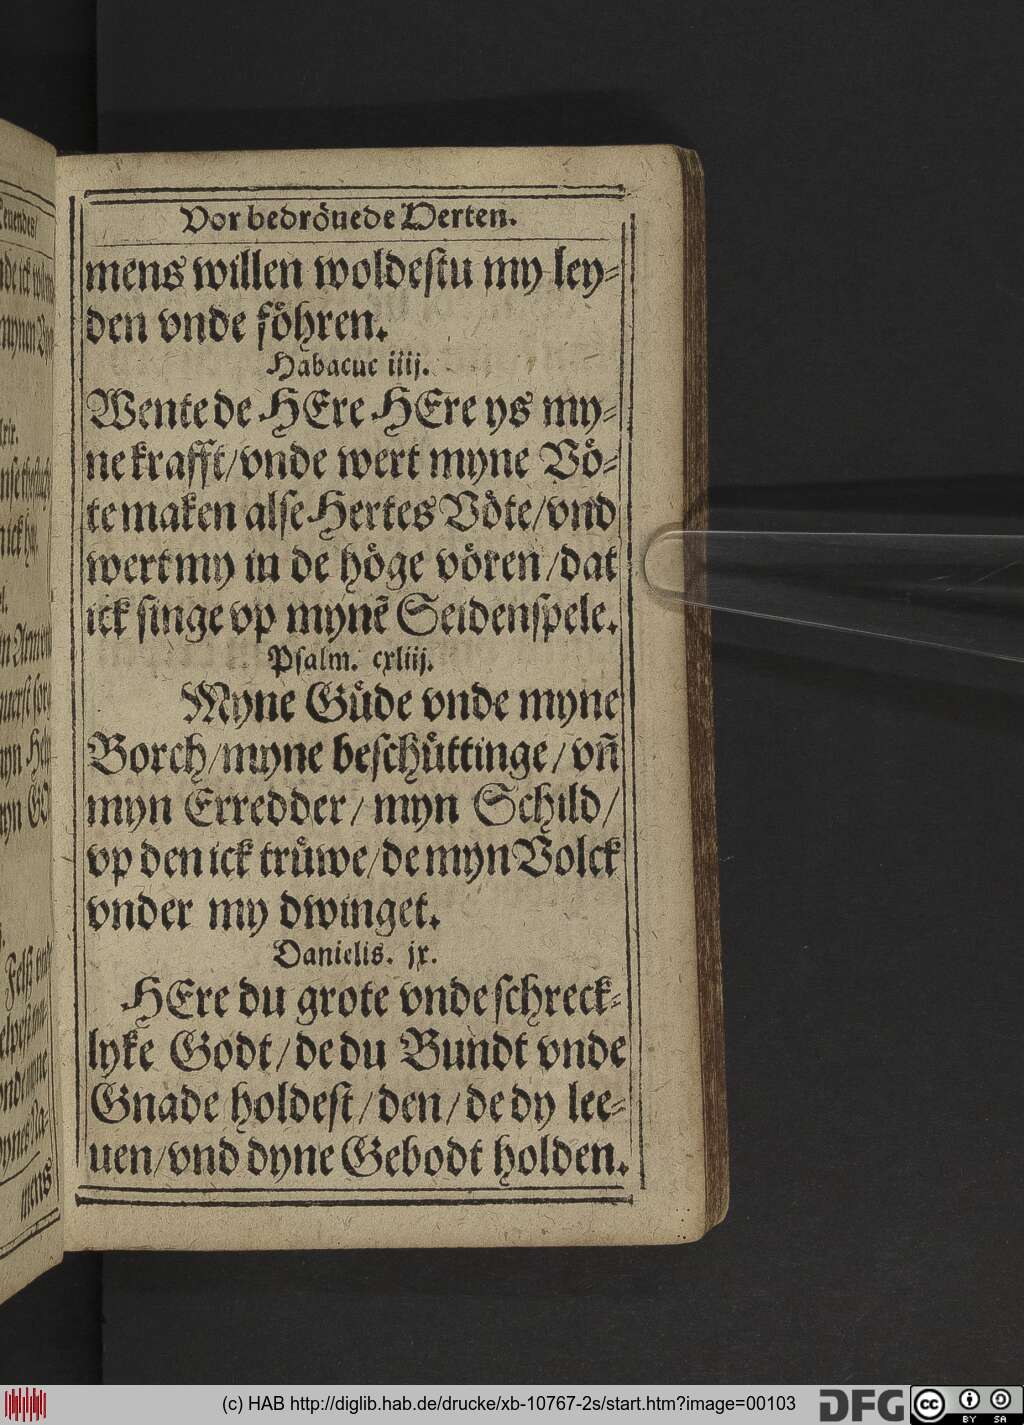 Vor bedröuede Herten.
mens willen woldestu my ley⸗
den vnde föhren.
Habacuc iiij.
Wente de HEre HEre ys my⸗
ne krafft/vnde wert myne Vö⸗
te maken alse Hertes Vöte/vnd
wert my in de höge vören/dat
ick singe vp mynẽ Seidenspele.
Psalm. cxliij.
Myne Güde vnde myne
Borch/myne beschüttinge/vñ
myn Erredder/myn Schild/
vp den ick trüwe/de myn Volck
vnder my dwinget.
Danielis. jx.
HEre du grote vnde schreck⸗
lyke Godt/de du Bundt vnde
Gnade holdest/den/de dy lee⸗
uen/vnd dyne Gebodt holden.
mens
(c) HAB http://diglib.hab.de/drucke/xb-10767-2s/start.htm?image=00103
DFG
cc
BY SA